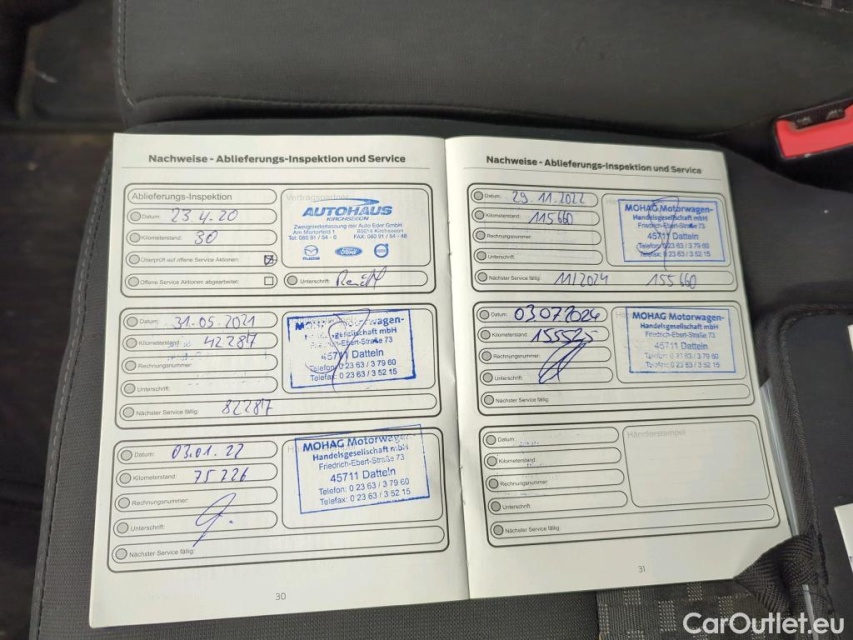 Nachweise - Ablieferungs-Inspektion und Service
Ablieferungs-Inspektion
Datum: 23.4.20
Kilometerstand: 30
Überprüft auf offene Service Aktionen:
Offene Service Aktionen abgearbeitet:
AUTOHAUS
KIRCHSEEON
Zweigniederlassung der Auto Eder GmbH
85614 Kirchseeon
Tel. 080 91 / 54 - 0 FAX: 080 91 / 54 - 48
mazda Ford VOLVO
Unterschrift:
Datum: 31.05.2021
Kilometerstand: 42287
Rechnungsnummer:
Unterschrift:
Nächster Service fällig: 82287
MOHAG Motorwagen-
Handelsgesellschaft mbH
Friedrich-Ebert-Straße 73
45711 Datteln
Telefon: 0 23 63 / 3 79 60
Telefax: 0 23 63 / 3 52 15
Datum: 03.01.22
Kilometerstand: 75226
Rechnungsnummer:
Unterschrift:
Nächster Service fällig:
MOHAG Motorwagen-
Handelsgesellschaft mbH
Friedrich-Ebert-Straße 73
45711 Datteln
Telefon: 0 23 63 / 3 79 60
Telefax: 0 23 63 / 3 52 15
30
Nachweise - Ablieferungs-Inspektion und Service
Datum: 29.11.2022
Kilometerstand: 115660
Rechnungsnummer:
Unterschrift:
Nächster Service fällig: 11/2024 155660
MOHAG Motorwagen-
Handelsgesellschaft mbH
Friedrich-Ebert-Straße 73
45711 Datteln
Telefon: 0 23 63 / 3 79 60
Telefax: 0 23 63 / 3 52 15
Datum: 03.07.2024
Kilometerstand: 155525
Rechnungsnummer:
Unterschrift:
Nächster Service fällig:
MOHAG Motorwagen-
Handelsgesellschaft mbH
Friedrich-Ebert-Straße 73
45711 Datteln
Telefon: 0 23 63 / 3 79 60
Telefax: 0 23 63 / 3 52 15
Datum:
Kilometerstand:
Rechnungsnummer:
Unterschrift:
Nächster Service fällig:
Händlerstempel
31
CarOutlet.eu